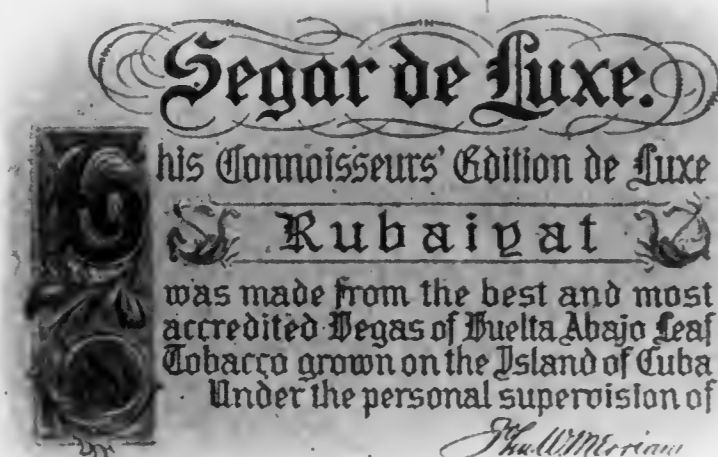 Segar de Luxe.
This Connoisseurs' Edition de Luxe
Rubaiyat
was made from the best and most
accredited Vegas of Vuelta Abajo Leaf
Tobacco grown on the Island of Cuba
Under the personal supervision of
Jno. W. Merriam